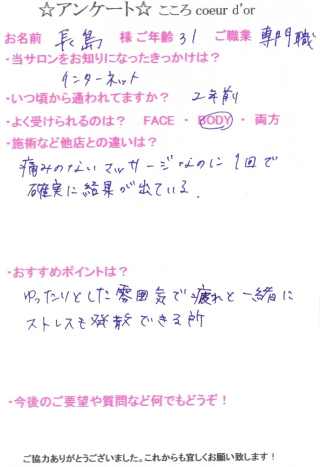 ☆アンケート☆ こころ coeur d'or
お名前 長島 様 ご年齢 31 ご職業 専門職
・当サロンをお知りになったきっかけは？
インターネット
・いつ頃から通われてますか？ 2年前
・よく受けられるのは？ FACE ・ BODY ・ 両方
・施術など他店との違いは？
痛みのないマッサージなのに1回で
確実に結果が出ている.
・おすすめポイントは？
ゆったりとした雰囲気で疲れと一緒に
ストレスも発散できる所
・今後のご要望や質問など何でもどうぞ！
ご協力ありがとうございました。これからも宜しくお願い致します！